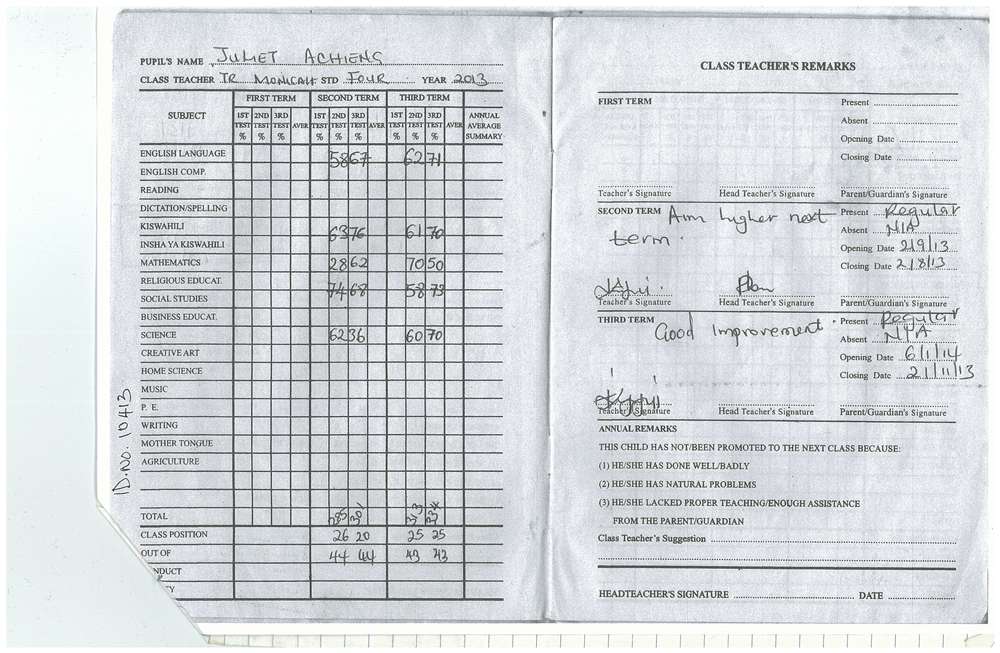 PUPIL'S NAME JULIET ACHIENG
CLASS TEACHER TR MONICAH STD FOUR YEAR 2013
SUBJECT FIRST TERM SECOND TERM THIRD TERM
1ST TEST % 2ND TEST % 3RD TEST % AVER 1ST TEST % 2ND TEST % 3RD TEST % AVER 1ST TEST % 2ND TEST % 3RD TEST % AVER ANNUAL AVERAGE SUMMARY
ENGLISH LANGUAGE 58 67 62 71
ENGLISH COMP.
READING
DICTATION/SPELLING
KISWAHILI 63 76 61 70
INSHA YA KISWAHILI
MATHEMATICS 28 62 70 50
RELIGIOUS EDUCAT. 74 68 58 73
SOCIAL STUDIES
BUSINESS EDUCAT.
SCIENCE 62 36 60 70
CREATIVE ART
HOME SCIENCE
MUSIC
P. E.
WRITING
MOTHER TONGUE
AGRICULTURE
TOTAL 285 301 313 334
CLASS POSITION 26 20 25 25
OUT OF 44 44 43 43
NDUCT
TY
ID.NO: 10413
CLASS TEACHER'S REMARKS
FIRST TERM
Present
Absent
Opening Date
Closing Date
Teacher's Signature Head Teacher's Signature Parent/Guardian's Signature
SECOND TERM Aim higher next term.
Present Regular
Absent N/A
Opening Date 2/9/13
Closing Date 2/8/13
Teacher's Signature Head Teacher's Signature Parent/Guardian's Signature
THIRD TERM Good Improvement.
Present Regular
Absent N/A
Opening Date 6/1/14
Closing Date 21/11/13
Teacher's Signature Head Teacher's Signature Parent/Guardian's Signature
ANNUAL REMARKS
THIS CHILD HAS NOT/BEEN PROMOTED TO THE NEXT CLASS BECAUSE:
(1) HE/SHE HAS DONE WELL/BADLY
(2) HE/SHE HAS NATURAL PROBLEMS
(3) HE/SHE LACKED PROPER TEACHING/ENOUGH ASSISTANCE
FROM THE PARENT/GUARDIAN
Class Teacher's Suggestion
HEADTEACHER'S SIGNATURE DATE